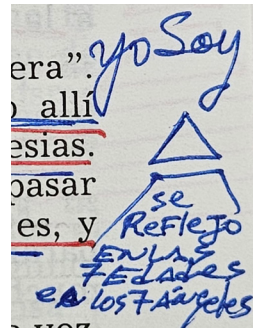 yo Soy
era".
o allí
esias.
pasar
es, y
se
ReFleJo
EN LAS
7 EdAdes
en los 7 Ángeles